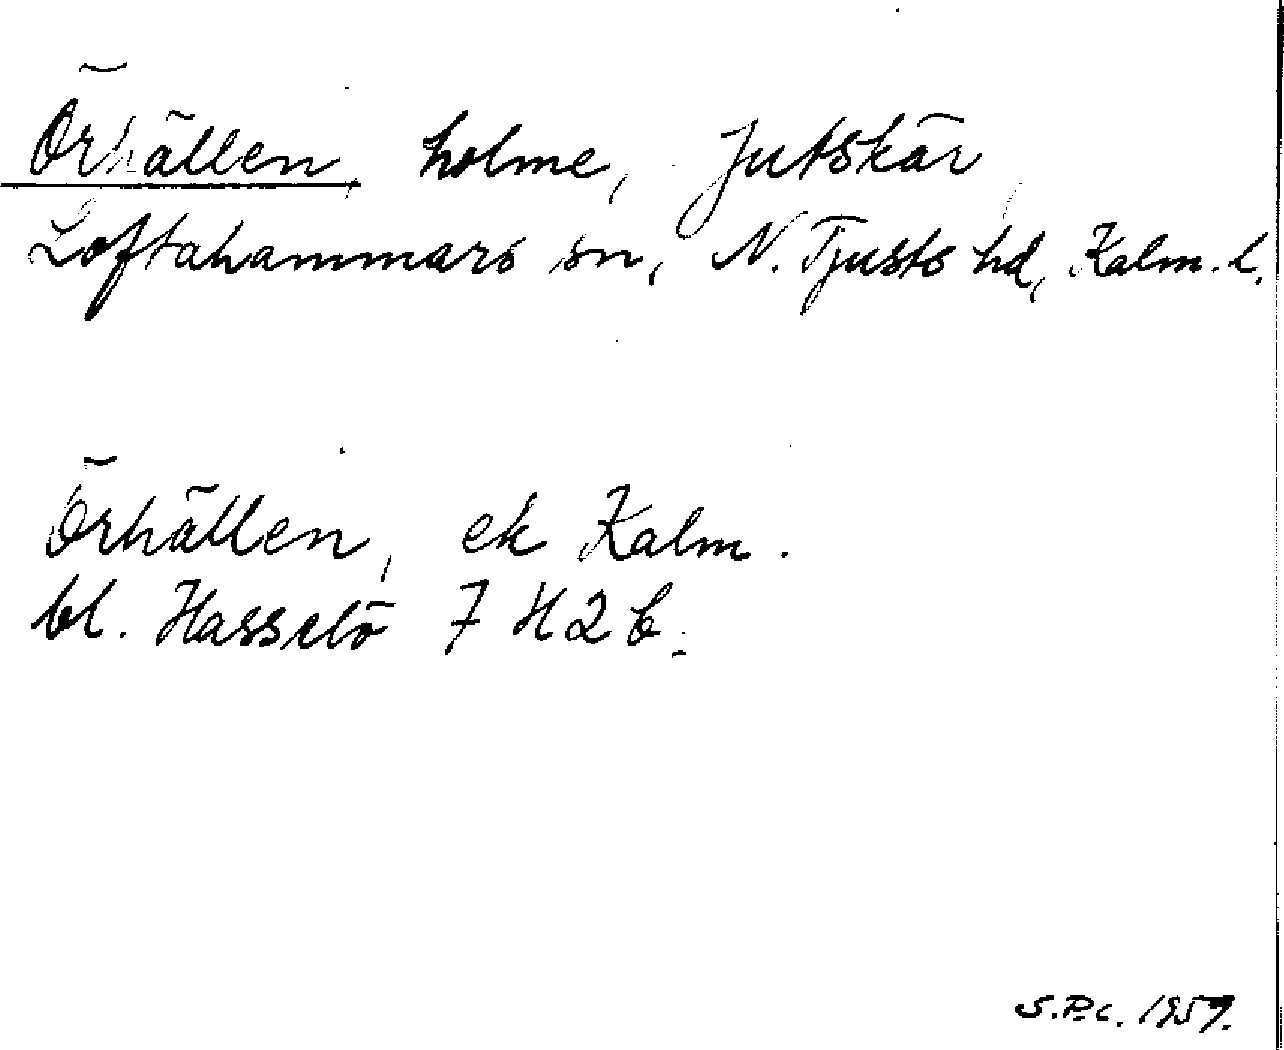 Örhällen, holme, Jutskär,
Loftahammars sn, N. Tjusts hd, Kalm. l.
Örhällen, ek Kalm.
bl. Hasselö 7 H 2 b.
S.P.c. 1959.